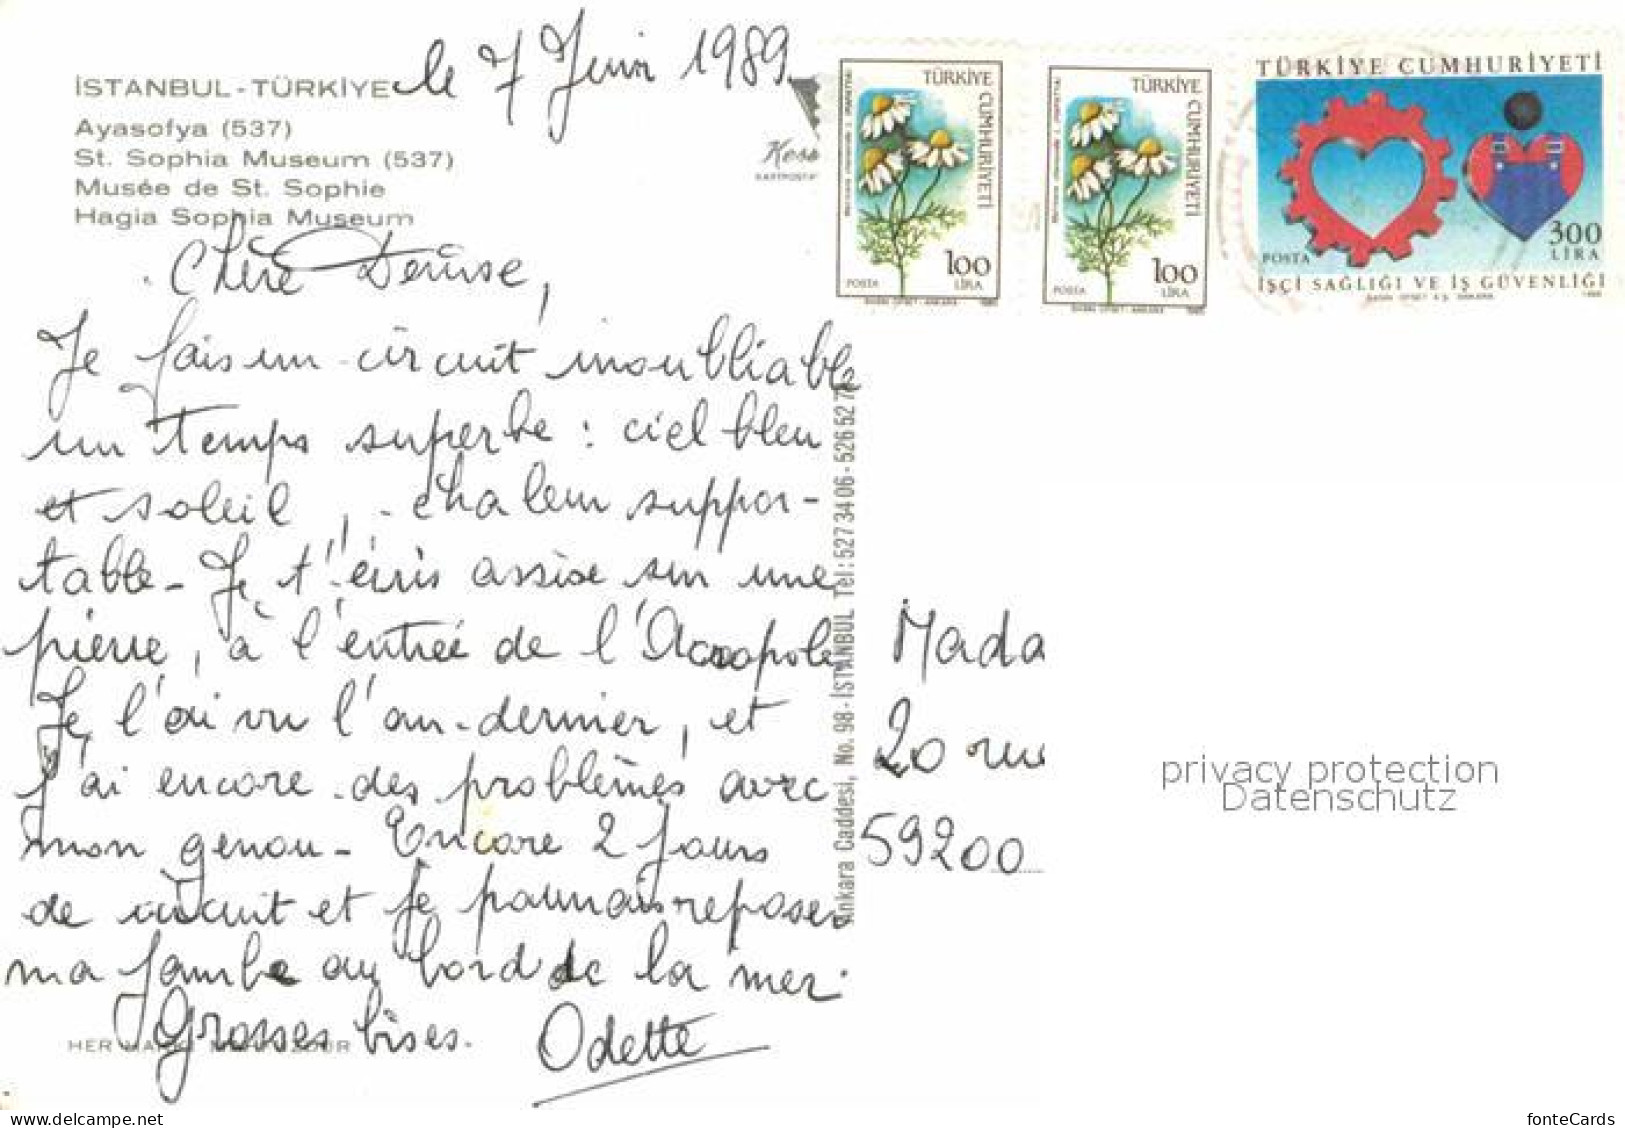 le 7 Juin 1989
İSTANBUL - TÜRKİYE
Ayasofya (537)
St. Sophia Museum (537)
Musée de St. Sophie
Hagia Sophia Museum
Chère Denise,
Je fais un circuit inoubliable
un temps superbe : ciel bleu
et soleil, chaleur suppor-
table - Je t'écris assise sur une
pierre, à l'entrée de l'Acropole
Je l'ai vu l'an dernier, et
j'ai encore des problèmes avec
mon genou - Encore 2 jours
de circuit et je pourrais reposer
ma jambe au bord de la mer.
Grosses bises.
Odette
HER HAKKI MAHFUZDUR
Ankara Caddesi, No. 98 - İSTANBUL Tel: 527 34 06 - 526 52 7
TÜRKİYE CUMHURİYETİ
POSTA
100
LİRA
TÜRKİYE CUMHURİYETİ
POSTA
100
LİRA
TÜRKİYE CUMHURİYETİ
POSTA
300
LİRA
İŞÇİ SAĞLIĞI VE İŞ GÜVENLİĞİ
Mada
20 rue
59200
privacy protection
Datenschutz
fonteCards
www.delcampe.net